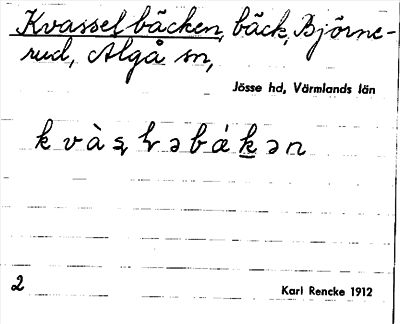 Kvasselbäcken, bäck, Björne-
rud, Algå sn,
Jösse hd, Värmlands län
2
Karl Rencke 1912